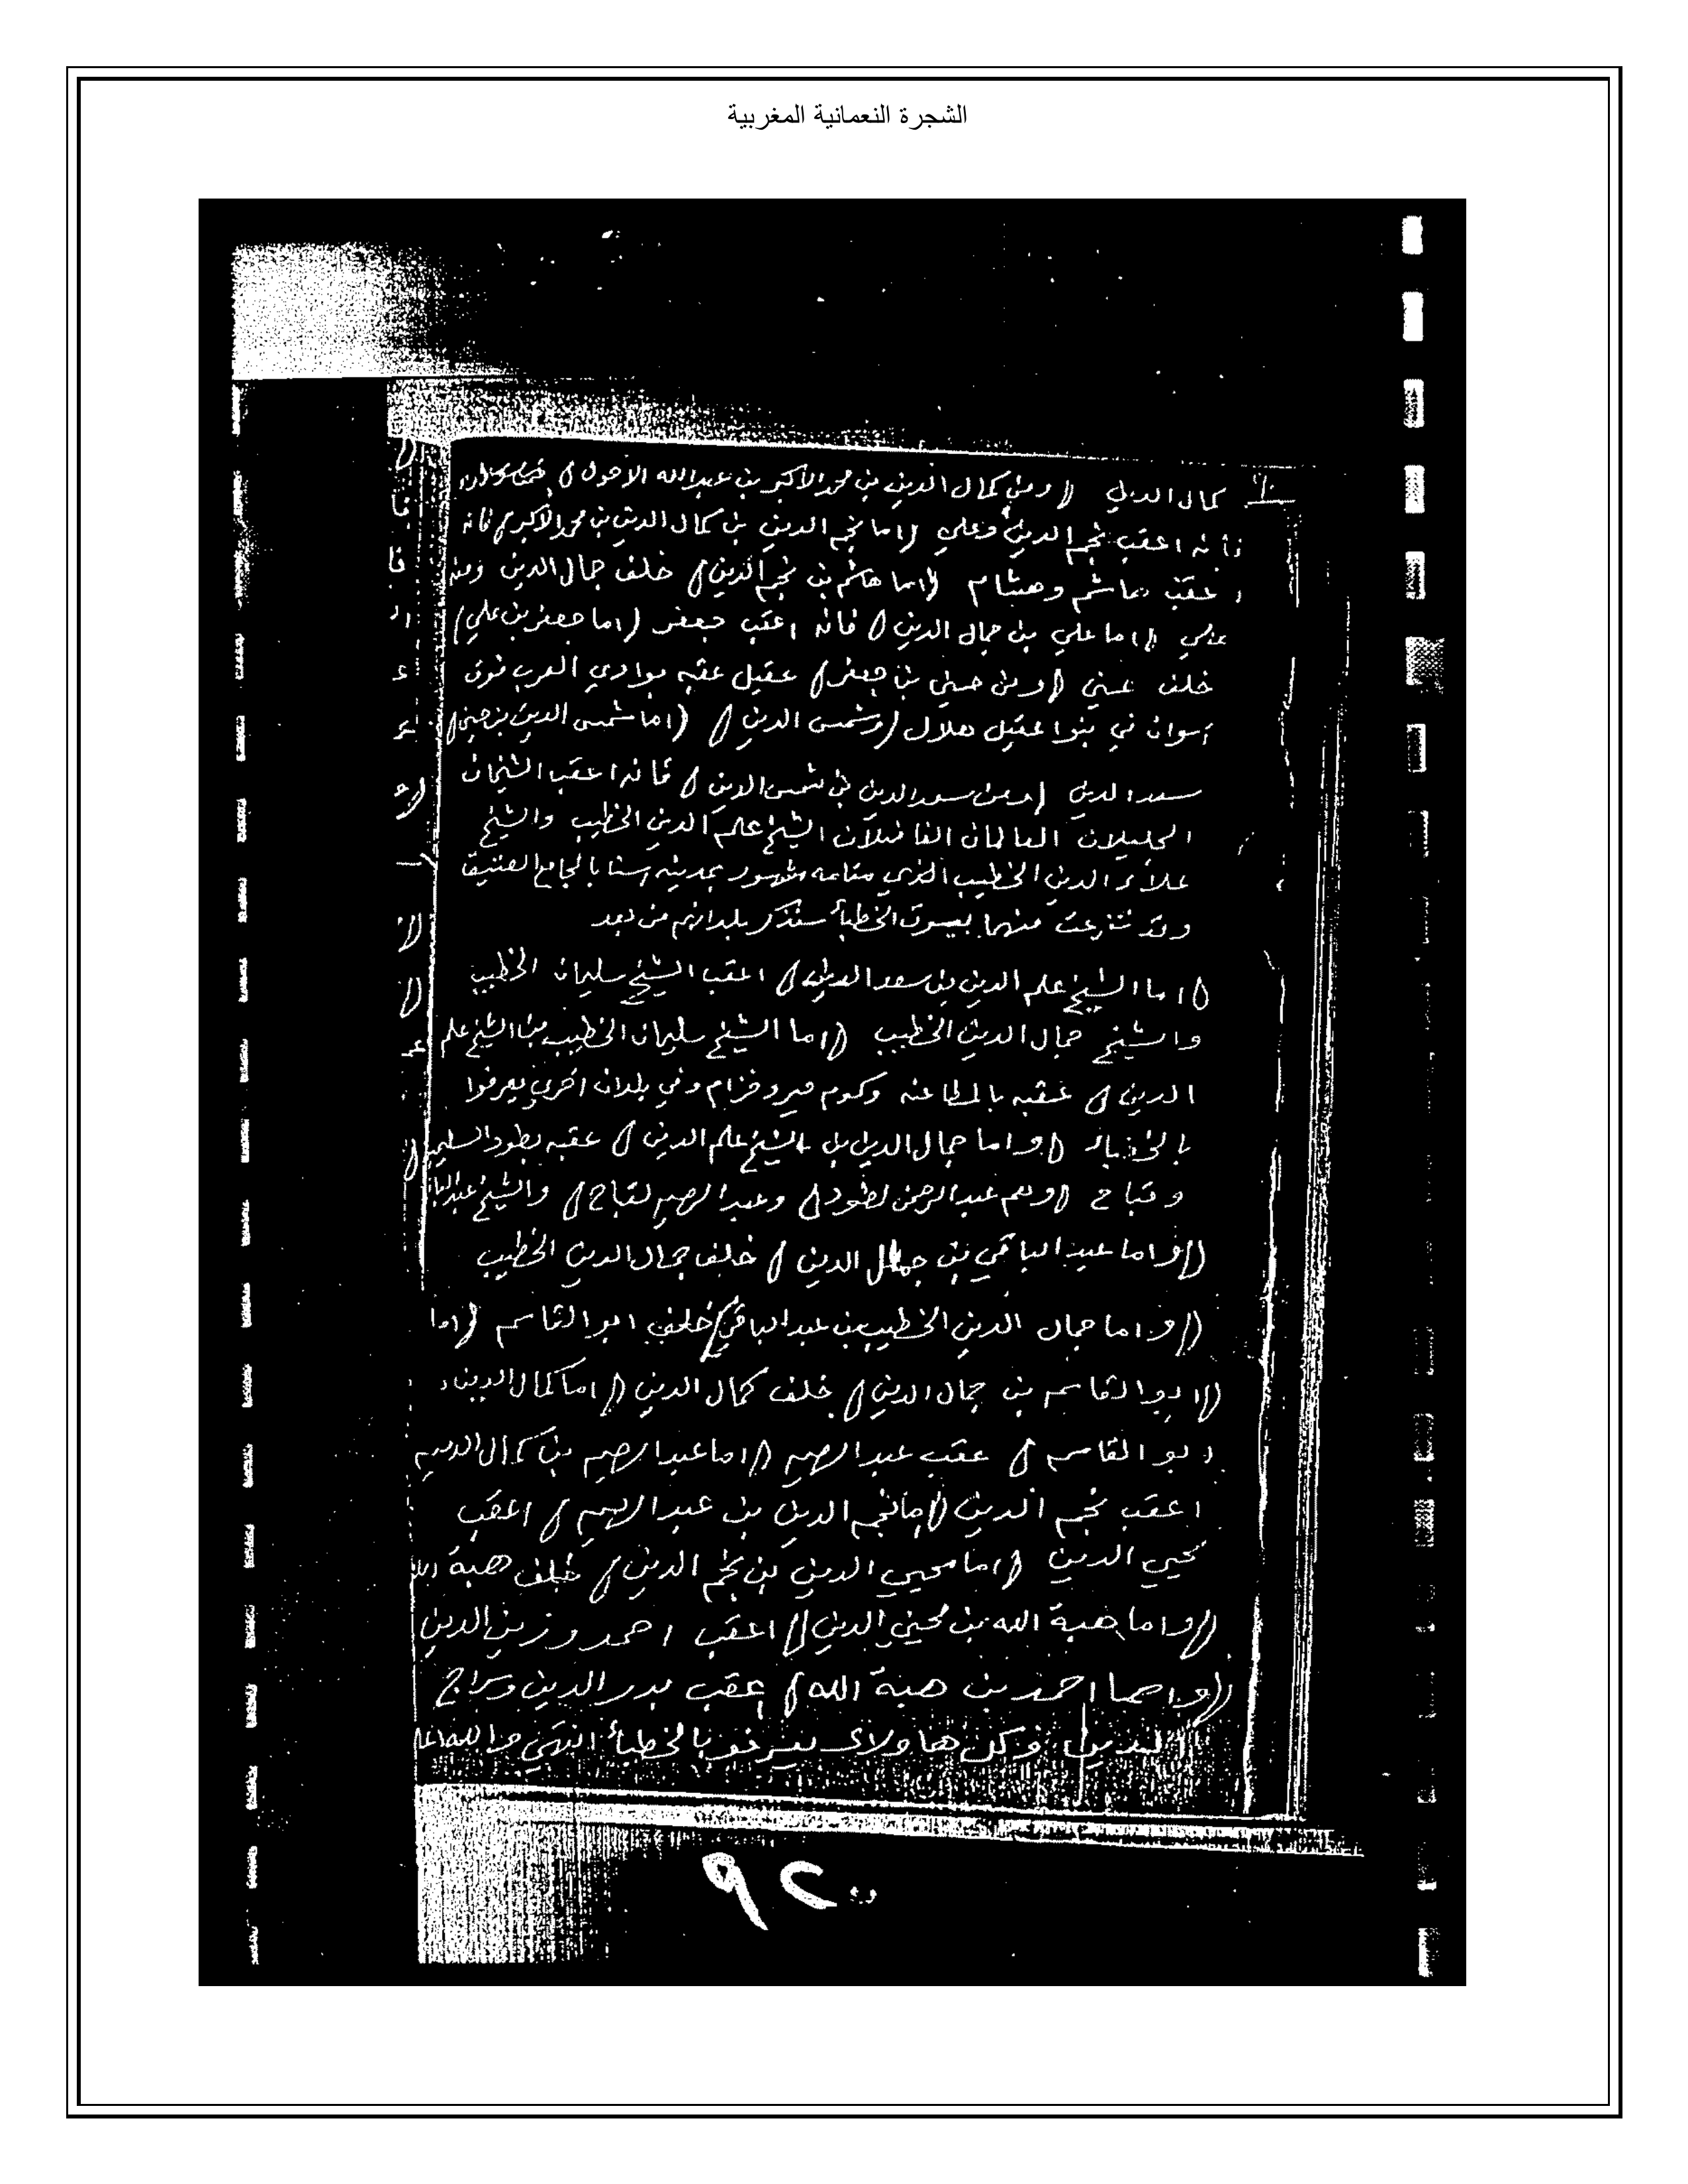 الشجرة النعمانية المغربية
كمال الدين (ومن كمال الدين بن محمد الاكبر بن عبدالله الاحول)
فأنه اعقب نجم الدين وعلي (اما نجم الدين بن كمال الدين بن محمد الاكبر) فانه
اعقب هاشم وهشام (اما هاشم بن نجم الدين) خلف جمال الدين ومنه
علي (اما علي بن جمال الدين) فانه اعقب جعفر (اما جعفر بن علي)
خلف (ومن بن جعفر) عقيل عقبه بوادي العرب فوق
أسوان في بنوا عقيل هلال (وشمس الدين) (اما شمس الدين بن
سعد الدين (ومن سعد الدين بن شمس الدين) فانه اعقب الشيخان
الجليلان العالمان الفاضلان الشيخ علم الدين الخطيب والشيخ
علاء الدين الخطيب الذي مقامه مشهور بمدينة اسنا بالجامع العتيق
وقد تفرعت منهما بيوت الخطبأ سنذكر بلدانهم من بعد
(اما الشيخ علم الدين بن سعد الدين) اعقب الشيخ سليمان الخطيب
والشيخ جمال الدين الخطيب (اما الشيخ سليمان الخطيب بن الشيخ علم
الدين) عقبه بالمطاعنه وكوم مير وفزام وفي بلدان أخرى يعرفوا
(واما جمال الدين بن الشيخ علم الدين) عقبه بطود
وقباح (وهم عبدالرحمن لطود) وعبد الرحيم لقباح) والشيخ
(واما عبد الباقي بن جمال الدين) خلف جمال الدين الخطيب
(واما جمال الدين الخطيب بن عبد الباقي) خلف ابو القاسم (اما
(ابو القاسم بن جمال الدين) خلف كمال الدين (اما كمال الدين
ابو القاسم) عقب عبد الرحيم (اما عبد الرحيم بن كمال الدين
اعقب نجم الدين (اما نجم الدين بن عبد الرحيم) اعقب
محيي الدين (اما محيي الدين بن نجم الدين) خلف هبة الله
(واما هبة الله بن محيي الدين) اعقب احمد وزين الدين
(واما احمد بن هبة الله) اعقب بدر الدين وسراج
الدين وكل هاولاى يعرفو بالخطبأ انتهى
٩٢